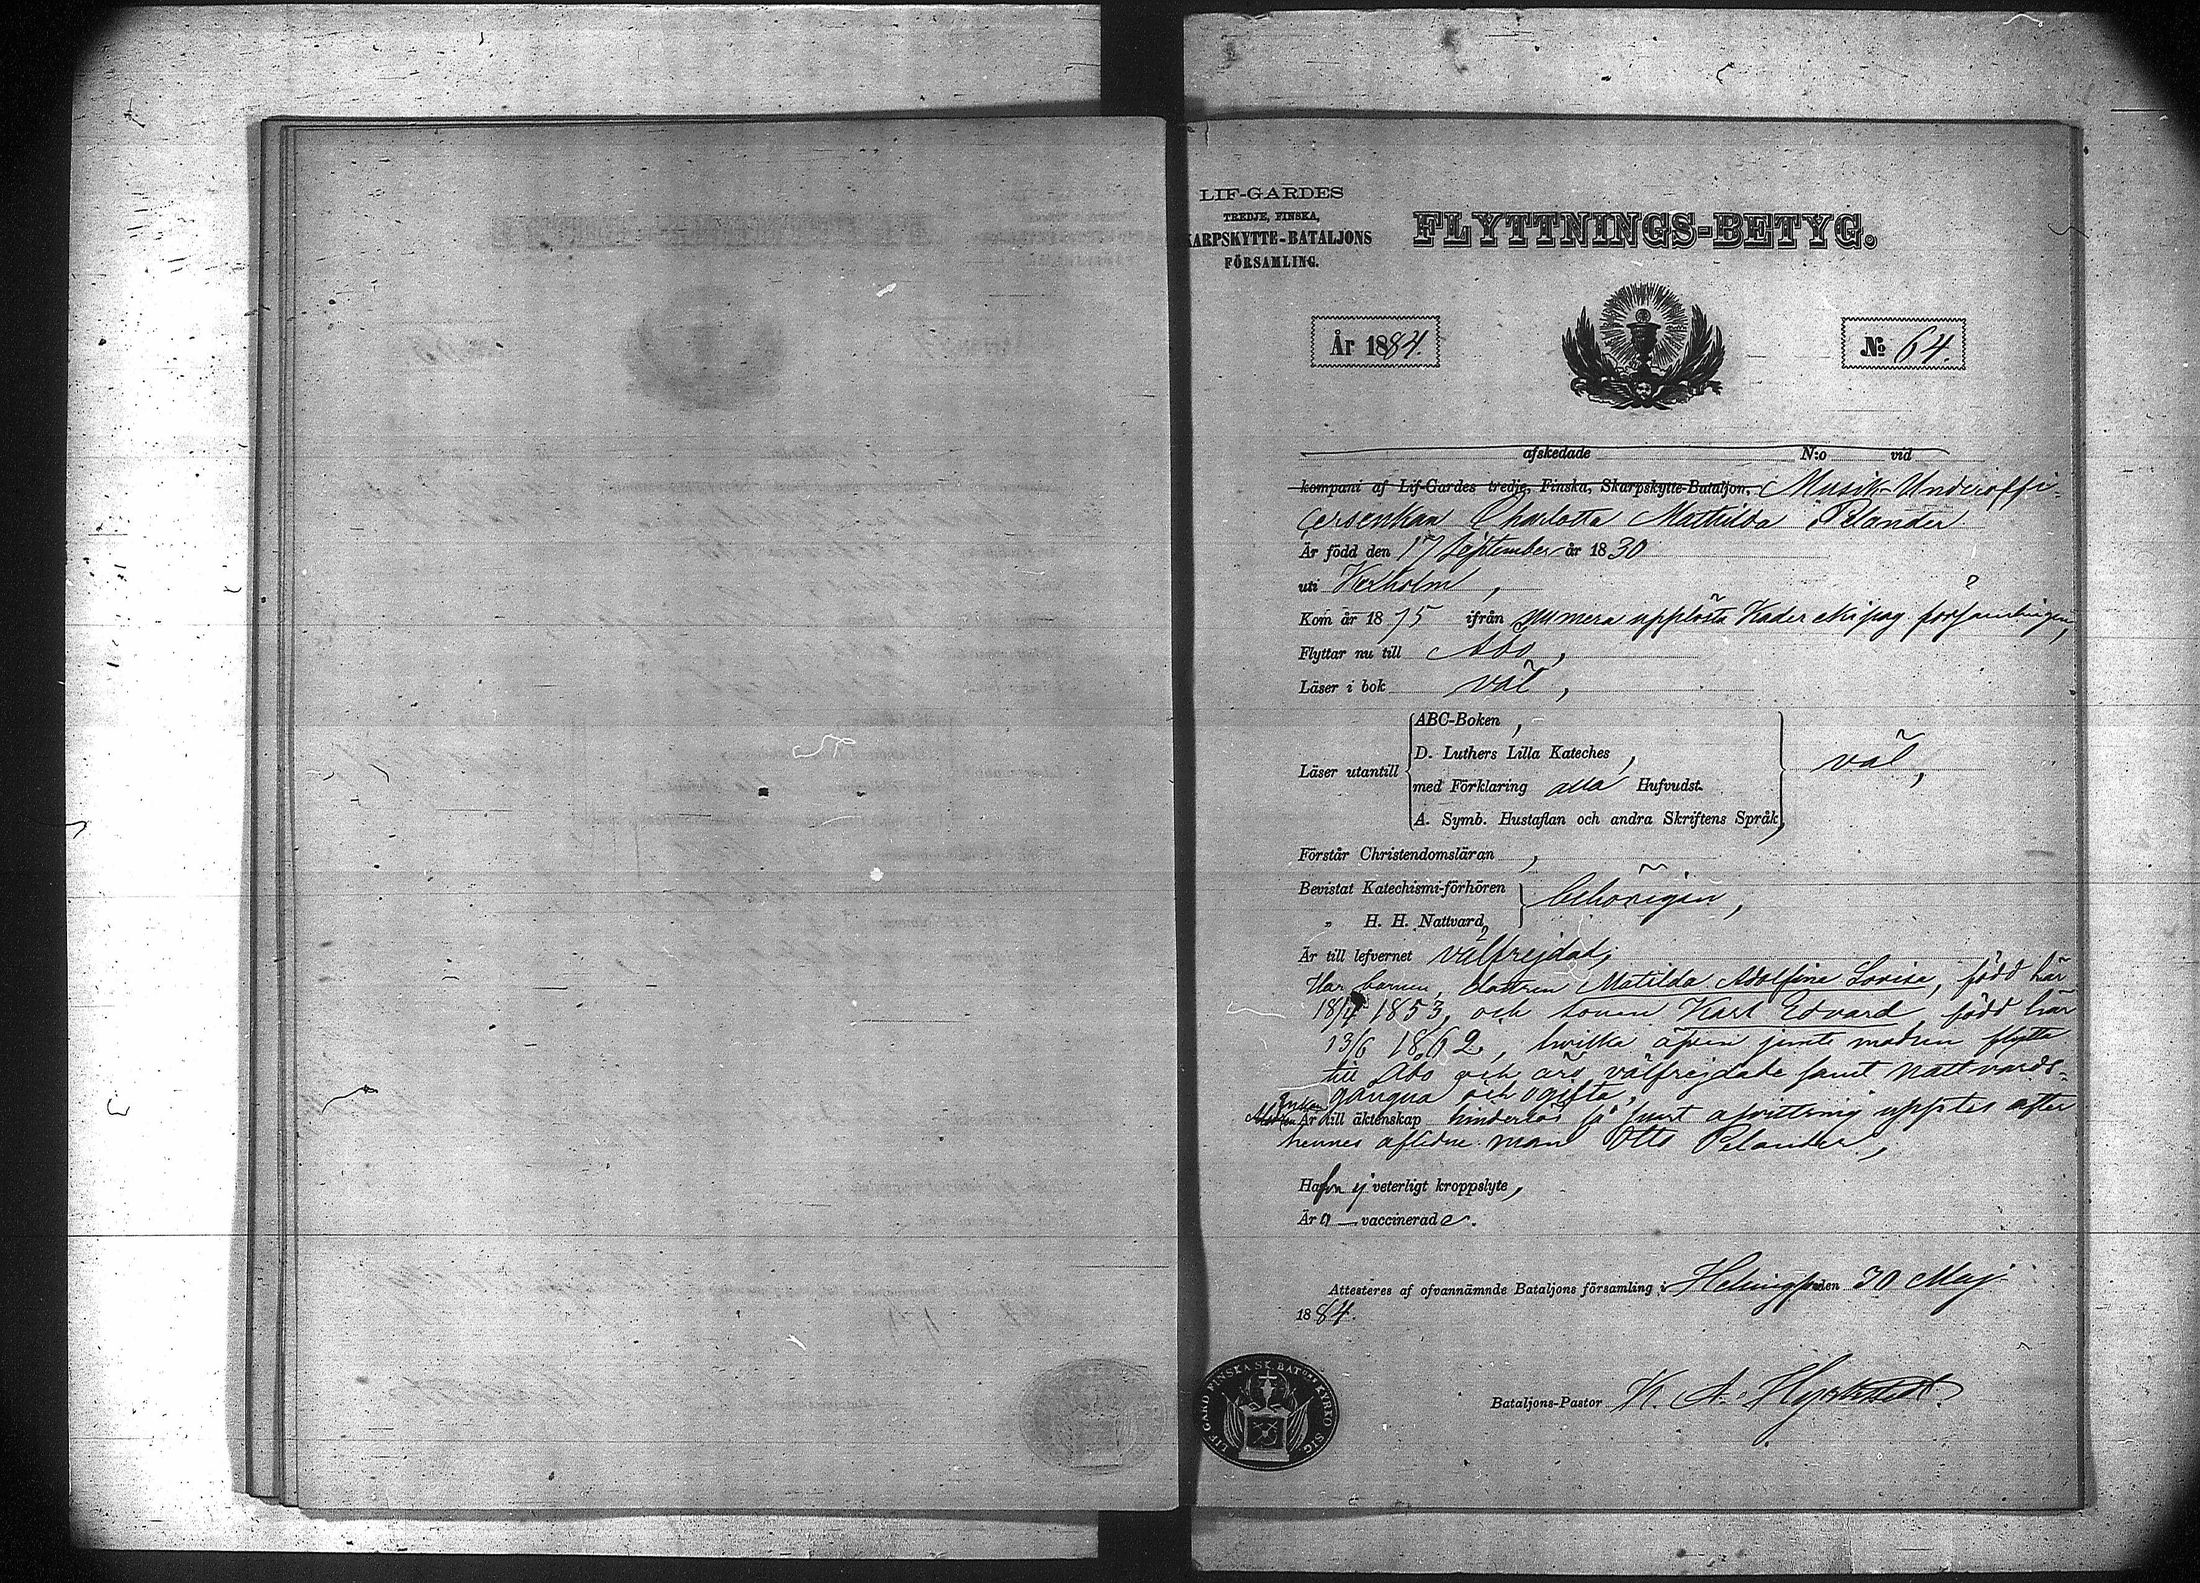 LIF-GARDES
TREDJE, FINSKA,
KARPSKYTTE-BATALJONS
FÖRSAMLING.
FLYTTNINGS-BETYG.
År 1884.
No 64.
afskedade N:o vid
kompani af Lif-Gardes tredje, Finska, Skarpskytte-Bataljon, Musik-Underoffi-
cersenkan Charlotta Mathilda Pelander
Är född den 17 September år 1830
uti Kexholm,
Kom år 1875 ifrån numera upplösta Kader ekipag församlingen,
Flyttar nu till Åbo,
Läser i bok väl,
Läser utantill
ABC-Boken,
D. Luthers Lilla Kateches,
med Förklaring alla Hufvudst.
A. Symb. Hustaflan och andra Skriftens Språk,
väl,
Förstår Christendomsläran,
Bevistat Katechismi-förhören
„ H. H. Nattvard,
behörigen,
Är till lefvernet välfrejdad;
Har barnen, dottren Matilda Adolfina Lovisa, född här
18/4 1853, och sonen Karl Edvard född här
13/6 1862, hvilka äfven jemte modren flytta
till Åbo och äro välfrejdade samt nattvards-
gångna och ogifta,
Enkan Är till äktenskap hinderlös så snart afvittring upptes efter
hennes aflidne man Otto Pelander,
Hafva ej veterligt kroppslyte,
Äro vaccinerade.
Attesteras af ofvannämnde Bataljons församling i Helsingfors den 30 Maj
1884.
Bataljons-Pastor K. A. Hyrkstedt.
LIF GARD FINSKA SK. BAT:ons KYRKO SIG.